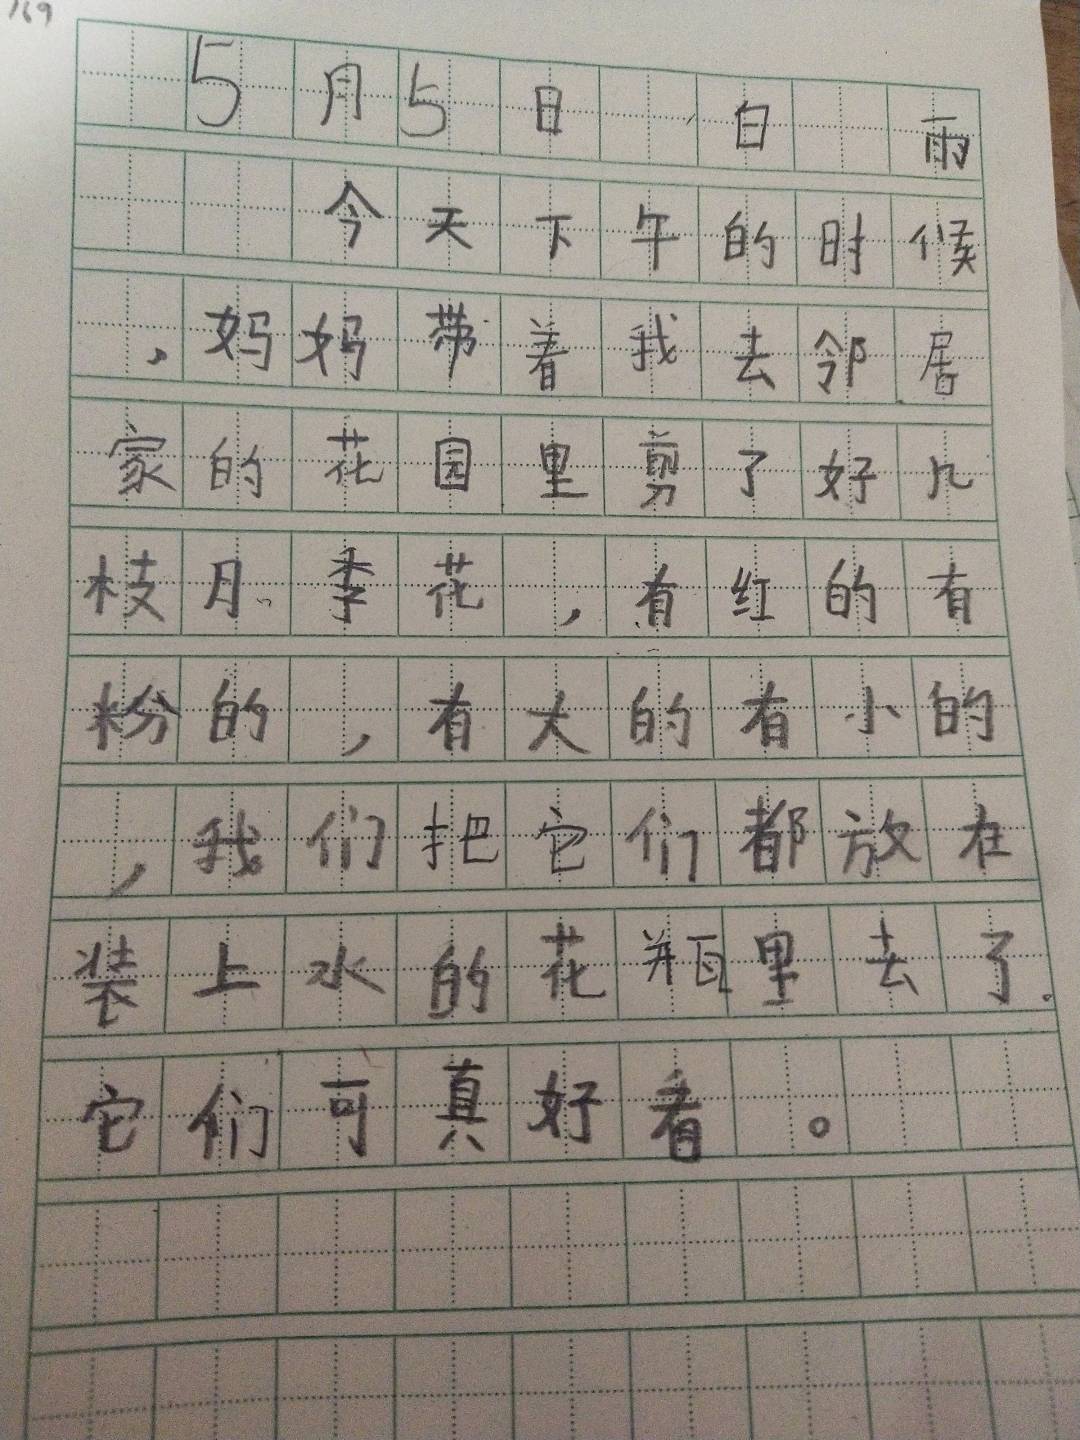 169
5月5日 白 雨
今天下午的时候
，妈妈带着我去邻居
家的花园里剪了好几
枝月季花，有红的有
粉的，有大的有小的
，我们把它们都放在
装上水的花瓶里去了.
它们可真好看。